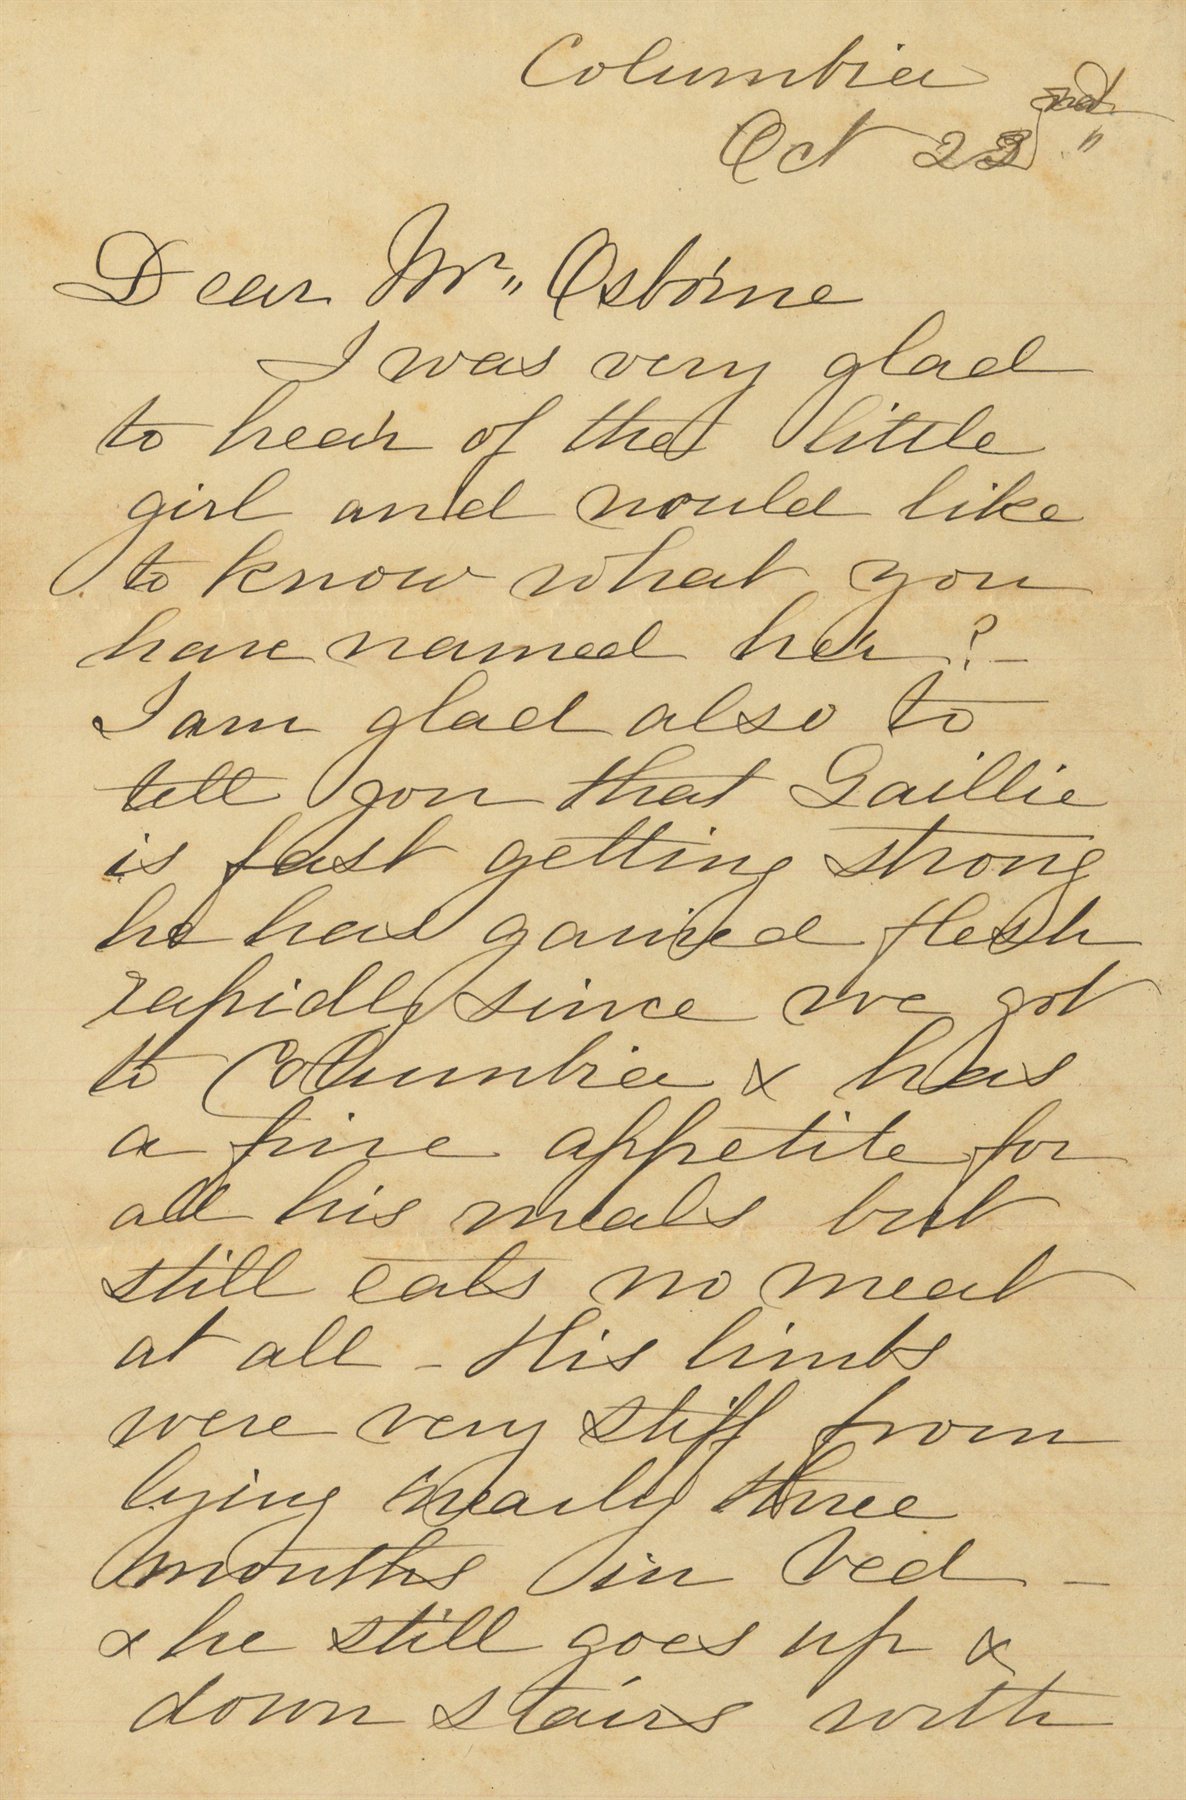 Columbia
Oct 22nd "
Dear Mr,, Osborne
I was very glad
to hear of the little
girl and would like
to know what you
have named her? -
I am glad also to
tell you that Gaillie
is fast getting strong
he has gained flesh
rapidly since we got
to Columbia & has
a fine appetite for
all his meals but
still eats no meat
at all - His limbs
were very stiff from
lying nearly three
months in bed -
& he still goes up &
down stairs with